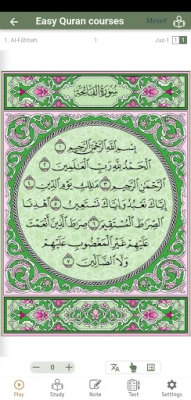 Easy Quran courses
Myself
1. Al-Fātihah 1 Juz-1 1 1
سُورَةُ الْفَاتِحَةِ
بِسْمِ اللَّهِ الرَّحْمَٰنِ الرَّحِيمِ ١
الْحَمْدُ لِلَّهِ رَبِّ الْعَالَمِينَ ٢
الرَّحْمَٰنِ الرَّحِيمِ ٣ مَالِكِ يَوْمِ الدِّينِ ٤
إِيَّاكَ نَعْبُدُ وَإِيَّاكَ نَسْتَعِينُ ٥ اهْدِنَا
الصِّرَاطَ الْمُسْتَقِيمَ ٦ صِرَاطَ الَّذِينَ أَنْعَمْتَ
عَلَيْهِمْ غَيْرِ الْمَغْضُوبِ عَلَيْهِمْ
وَلَا الضَّالِّينَ ٧
0
Play Study Note Test Settings